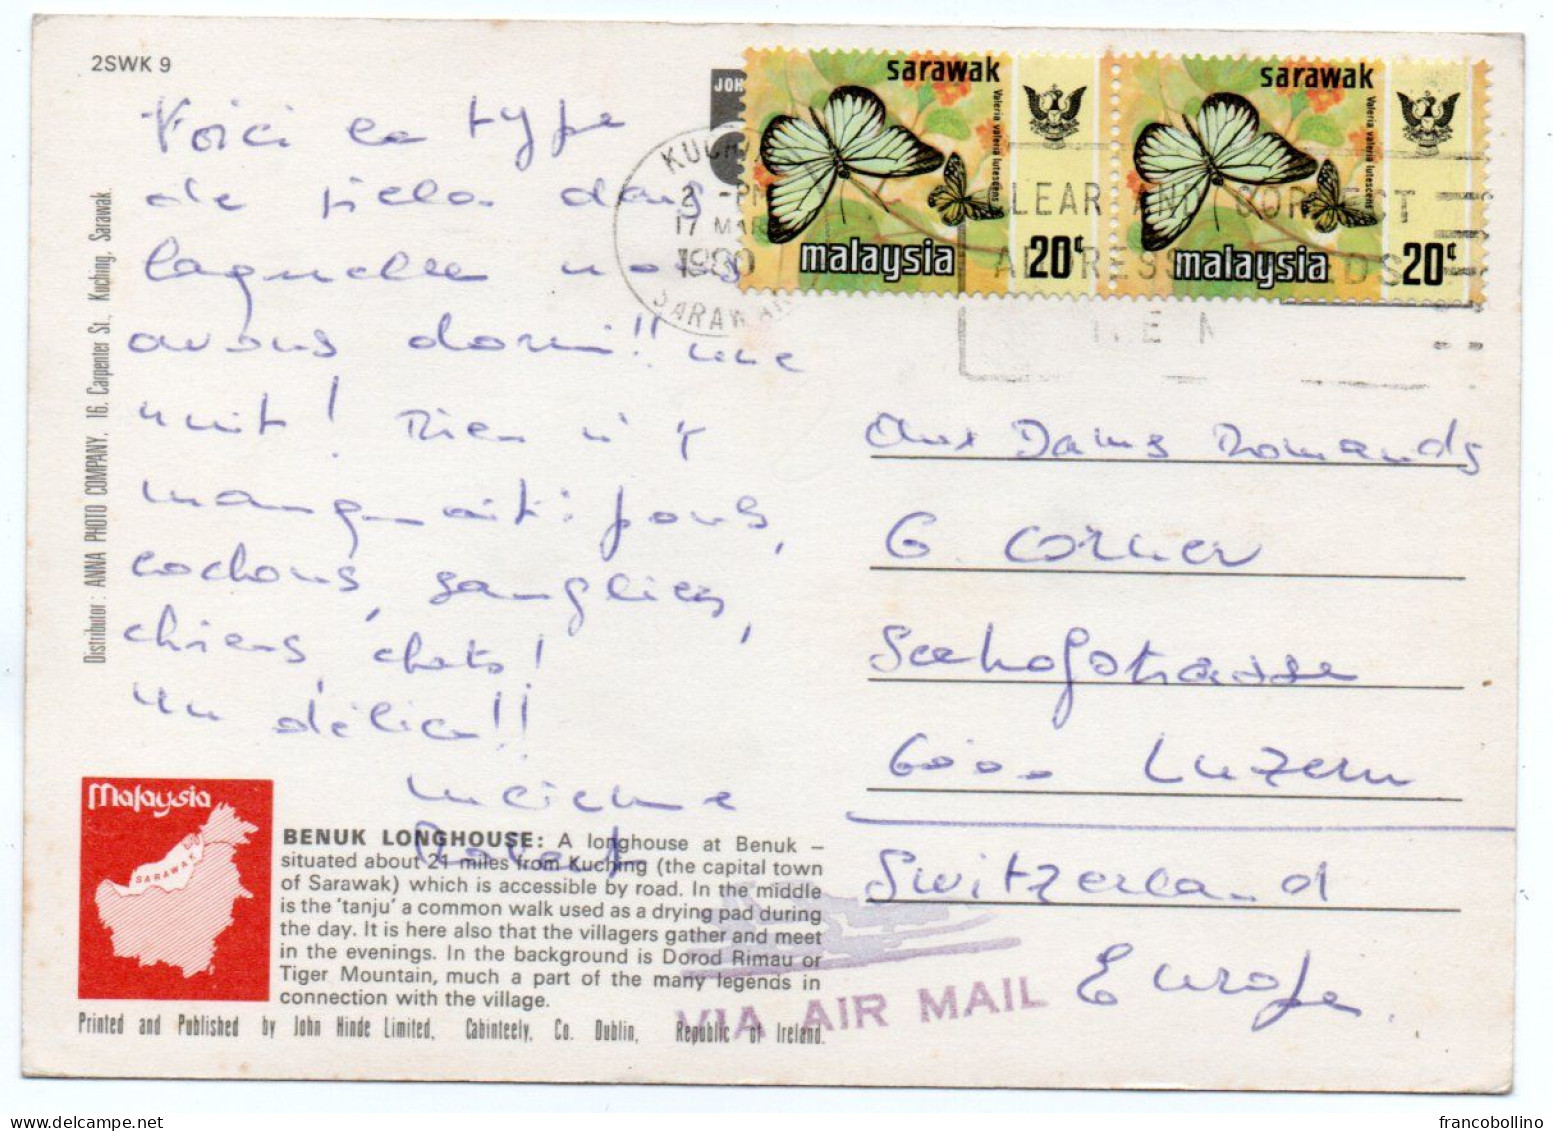 2SWK 9
Voici le type
de piela dans
laquelle nous
avons dormi!! une
nuit! Rien n'y
manquait: pous,
cochons, sangliers,
chiens, chats!
Un délice!!
Distributor: ANNA PHOTO COMPANY, 16, Carpenter St., Kuching, Sarawak.
JOH
sarawak
Valeria valeria lutescens
malaysia
20¢
sarawak
Valeria valeria lutescens
malaysia
20¢
KUCHI
2 -PM
17 MAR
1980
SARAWAK
CLEAR AND CORRECT
ADDRESS
Aux Dames Romands
G. Corner
Seehofstrasse
6000 Luzern
Switzerland
Europe
VIA AIR MAIL
Malaysia
SARAWAK
BENUK LONGHOUSE: A longhouse at Benuk –
situated about 21 miles from Kuching (the capital town
of Sarawak) which is accessible by road. In the middle
is the 'tanju' a common walk used as a drying pad during
the day. It is here also that the villagers gather and meet
in the evenings. In the background is Dorod Rimau or
Tiger Mountain, much a part of the many legends in
connection with the village.
Printed and Published by John Hinde Limited, Cabinteely, Co. Dublin, Republic of Ireland.
francobollino